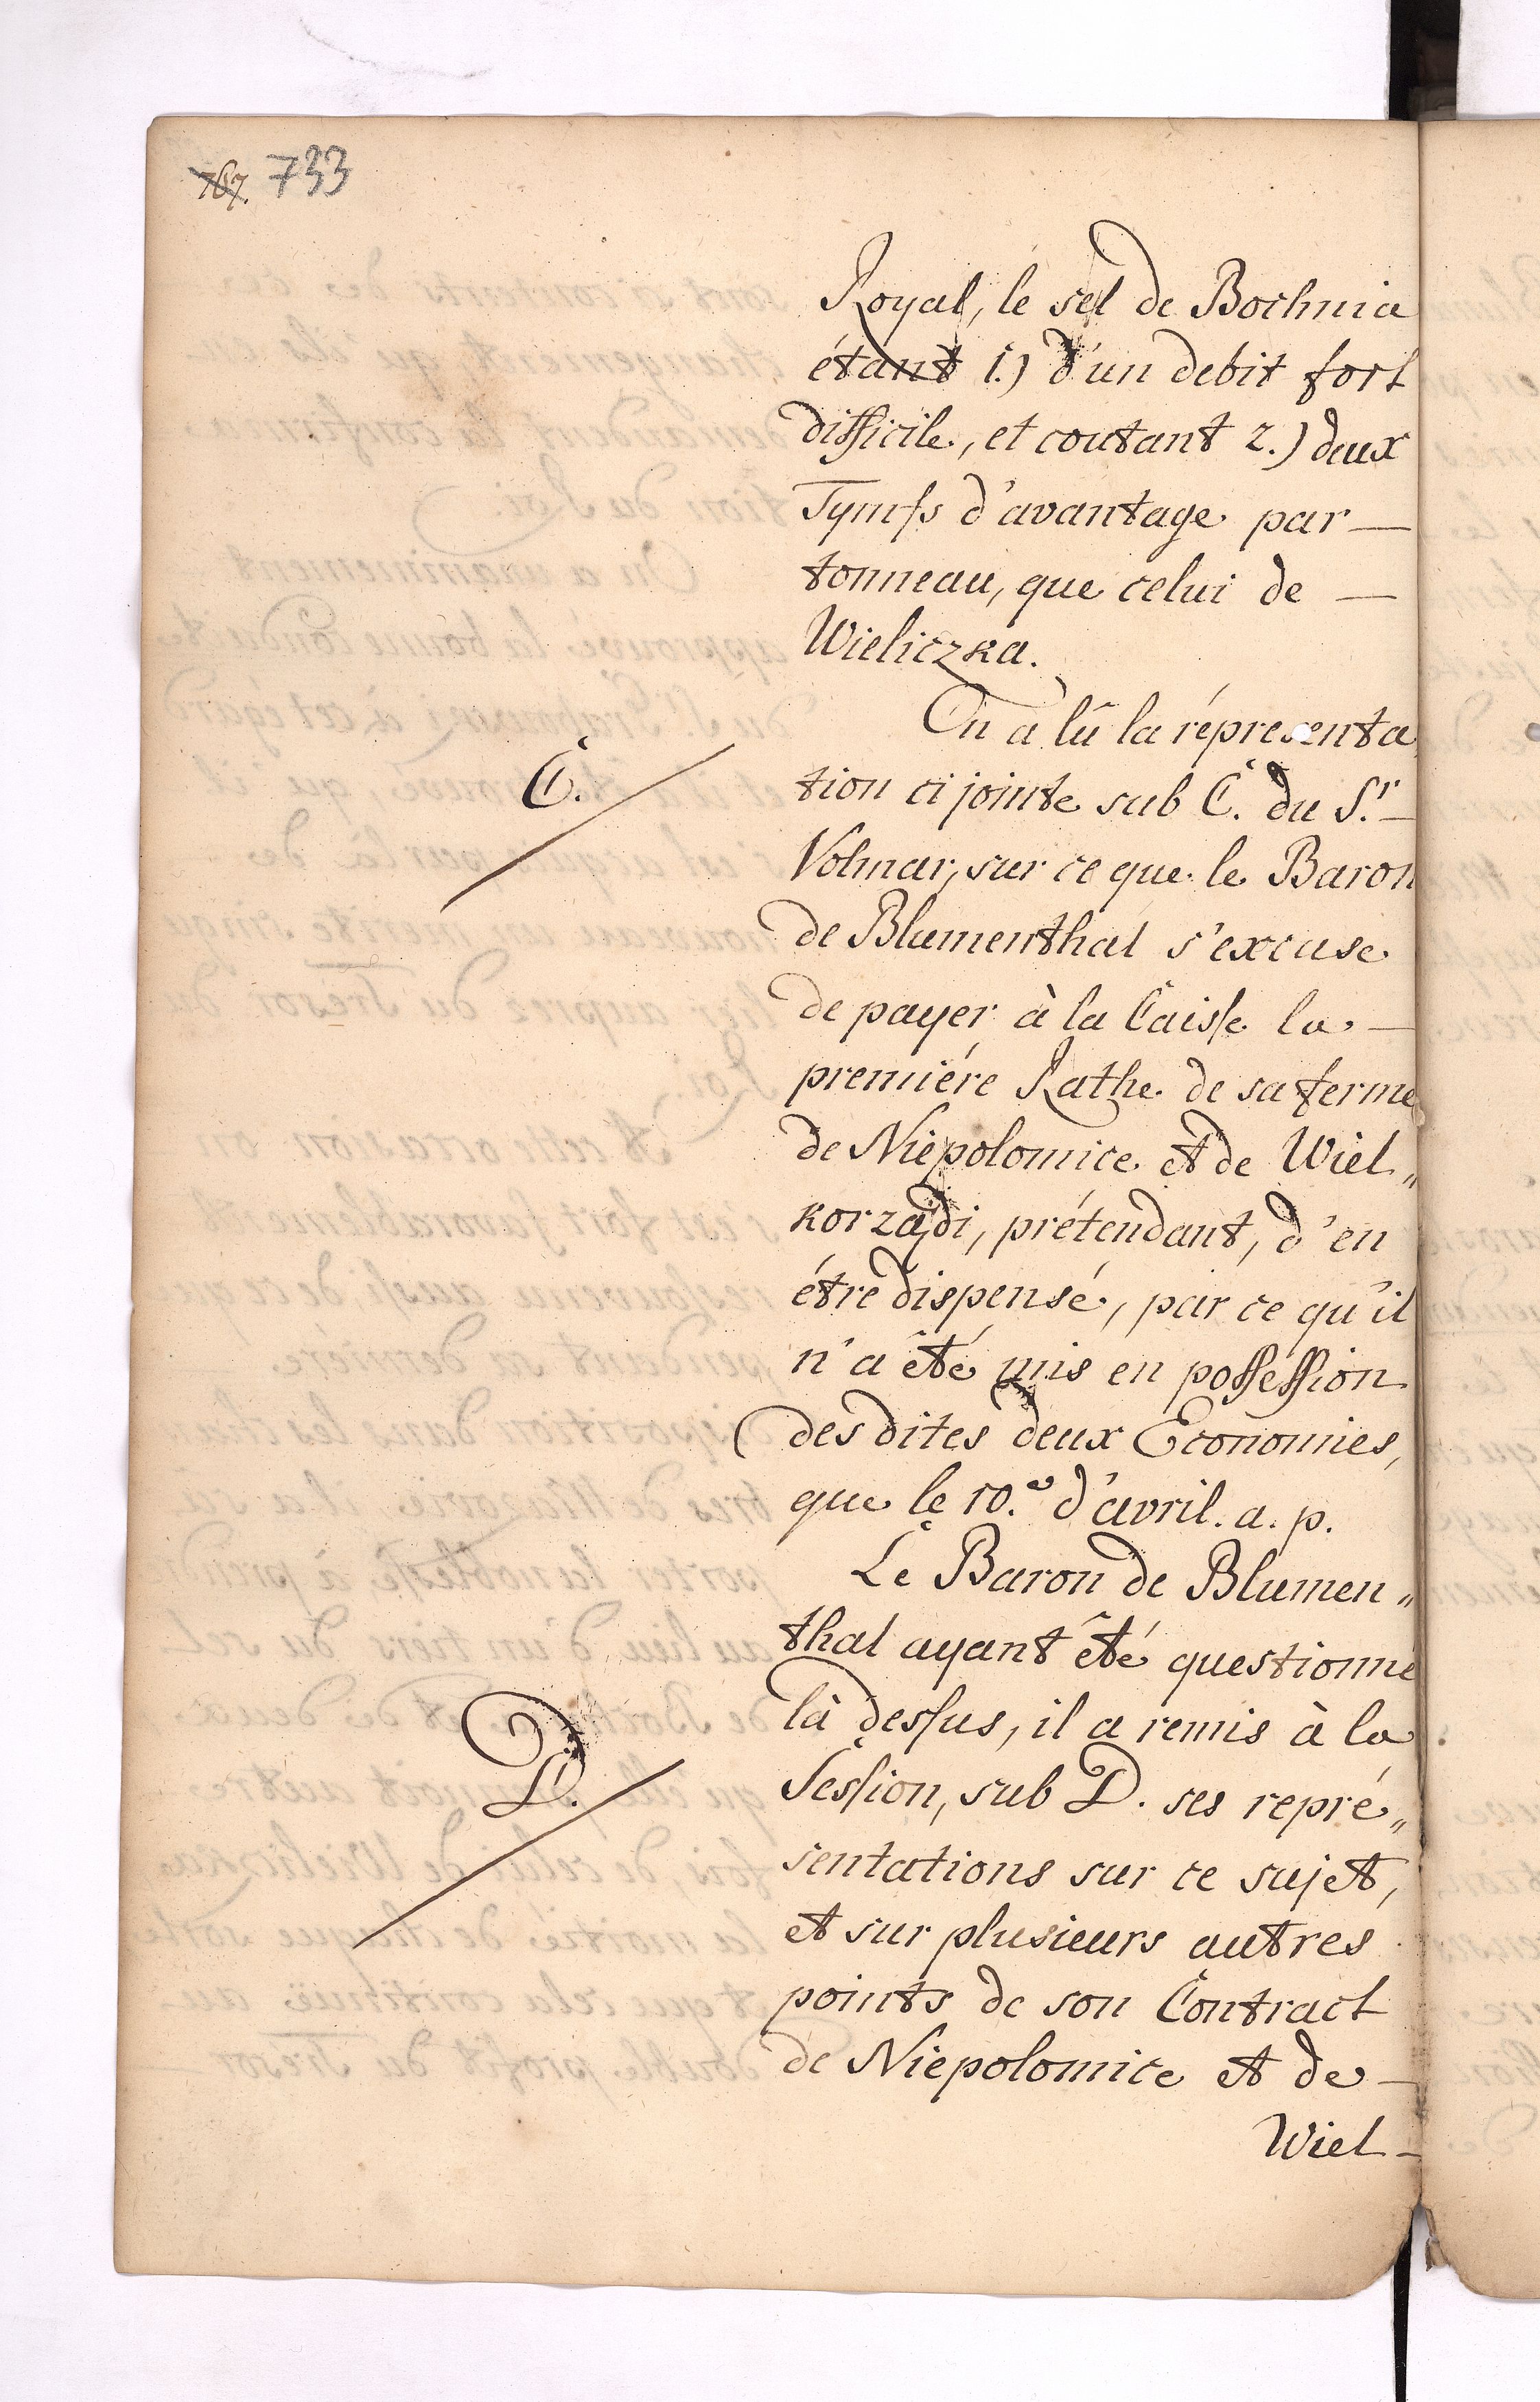 767. 733
Royal, le sel de Bochnia
étant 1.) d'un debit fort
difficile, et coutant 2.) deux
Tymfs d'avantage par —
tonneau, que celui de —
Wieliczka.
On a lû la répresenta
C.
tion ci jointe sub C. du Sr. —
Volmar, sur ce que le Baron
de Blumenthal s'excuse
de payer à la Caisse la —
premiére Rathe de sa ferme
de Niepolomice et de Wiel„
korządi, prétendant, d'en
étre dispensé, par ce qu'il
n'a êté mis en possession
des dites deux Economies,
que le 10.e d'avril. a. p.
Le Baron de Blumen„
thal ayant êté questionné
là dessus, il a remis à la
D.
Session, sub D. ses repré„
sentations sur ce sujet,
et sur plusieurs autres
points de son Contract
de Niepolomice et de —
Wiel —